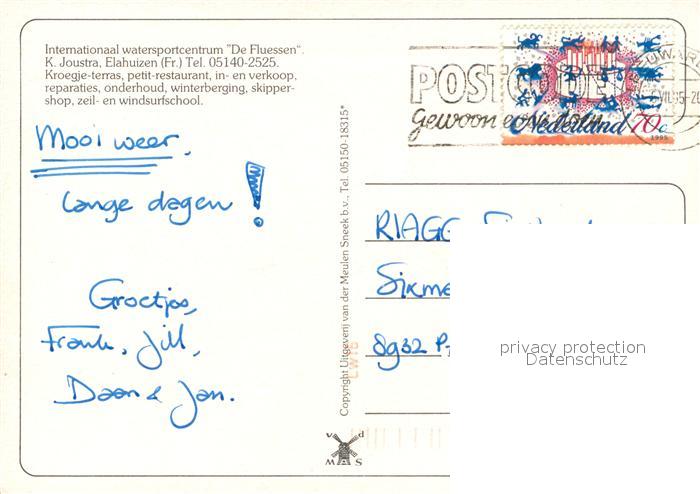 Internationaal watersportcentrum "De Fluessen".
K. Joustra, Elahuizen (Fr.) Tel. 05140-2525.
Kroegje-terras, petit-restaurant, in- en verkoop,
reparaties, onderhoud, winterberging, skipper-
shop, zeil- en windsurfschool.
Mooi weer,
lange dagen!
Groetjes,
Frank, Jill,
Daan & Jan.
Copyright Uitgeverij van der Meulen Sneek b.v., Tel. 05150-18315*
v d
M S
POSTCODE
Gewoon even doen
Nederland 70c
1995
RIAGG
8932
privacy protection
Datenschutz